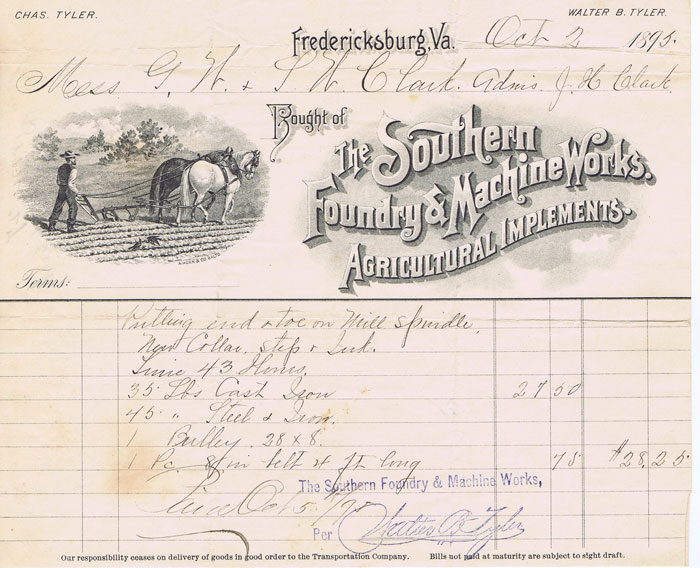 CHAS. TYLER.
WALTER B. TYLER.
Fredericksburg, Va. Oct 2 1895.
Mess G. W. & S. W. Clark. Admis. J. H. Clark
Bought of
The Southern
Foundry & Machine Works.
Agricultural Implements.
Terms:
Putting end & toe on Mill Spindle.
New Collar, Step &
Time 43 Hours.
35 Lbs Cast Iron 27 50
45 " Steel & Iron.
1 28 x 8
1 Pc. 8 in belt 4 ft long 75 $28,25
The Southern Foundry & Machine Works,
Oct 5
Per Walter B. Tyler
Our responsibility ceases on delivery of goods in good order to the Transportation Company. Bills not paid at maturity are subject to sight draft.